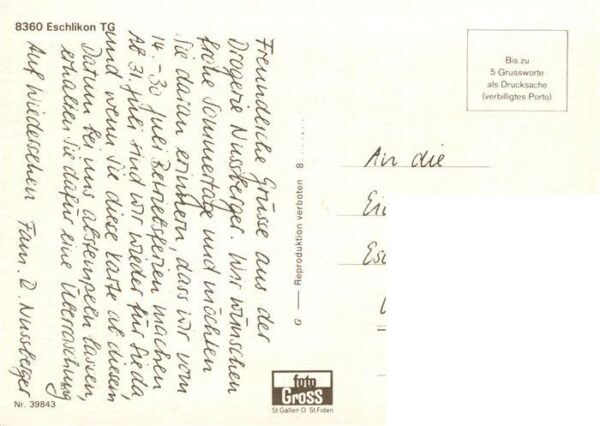 8360 Eschlikon TG
Freundliche Grüsse aus der
Drogerie Nussberger. Wir wünschen
frohe Sommertage und möchten
Sie daran erinnern, dass wir vom
14. - 30 Juli Betriebsferien machen
Ab 31. Juli sind wir wieder für Sie da,
und wenn Sie diese Karte ab diesem
Datum bei uns abstempeln lassen,
erhalten Sie dafür eine Überraschung
Auf Wiedersehen Fam. D. Nussberger
Nr. 39843
G — Reproduktion verboten 8
foto
Gross
St.Gallen O St.Fiden
Bis zu
5 Grussworte
als Drucksache
(verbilligtes Porto)
An die